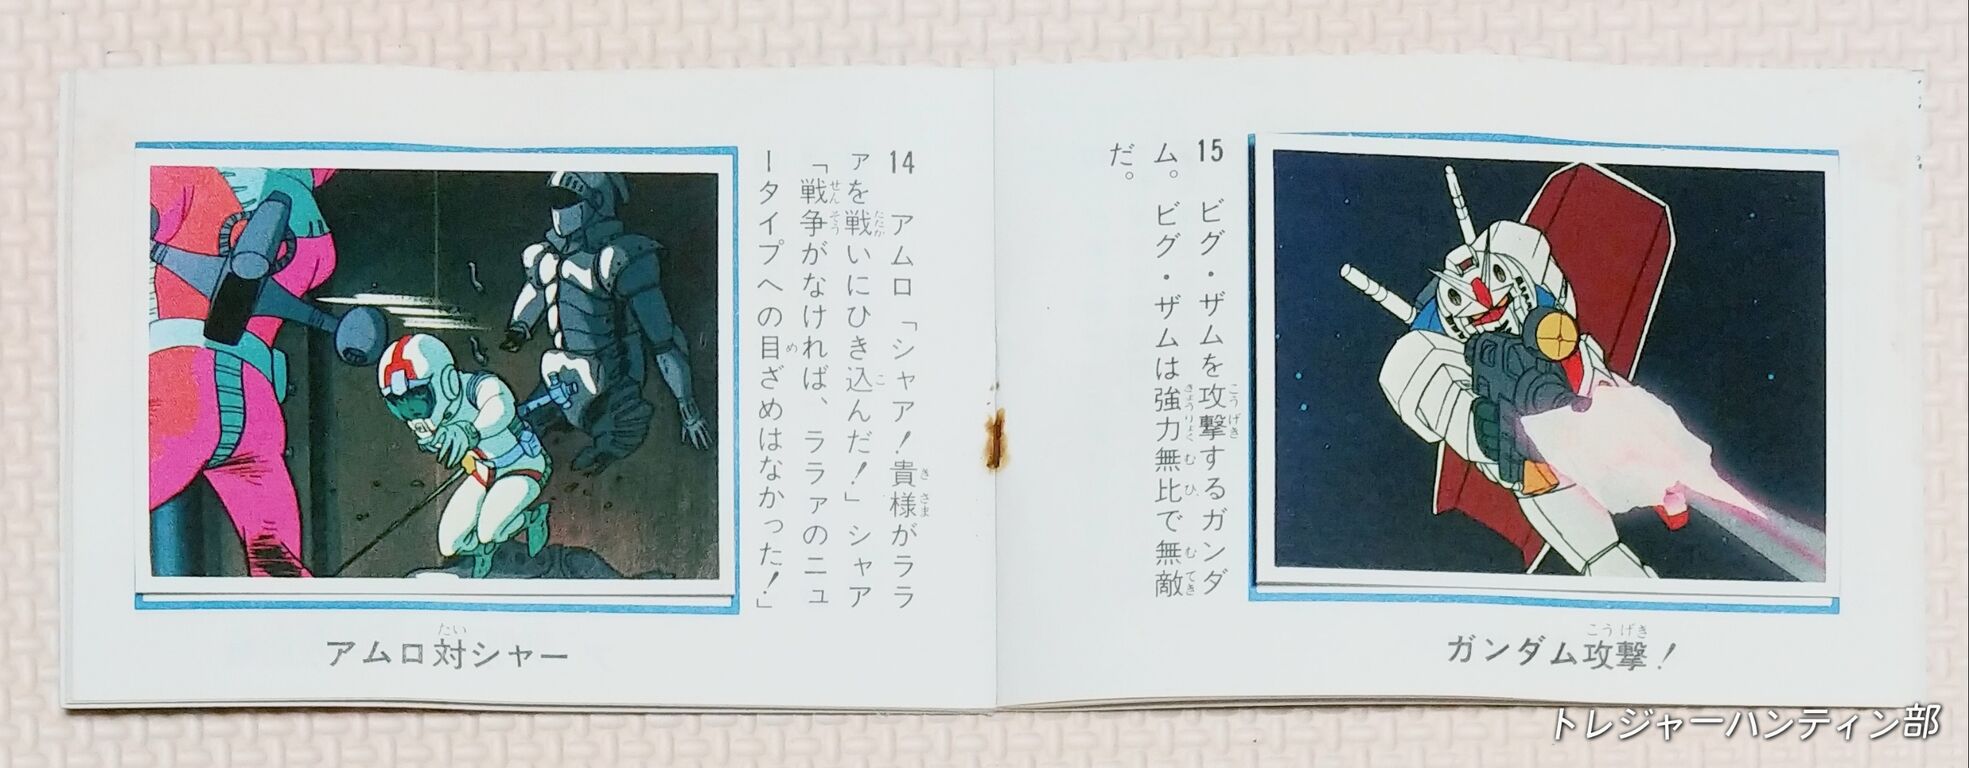 14 アムロ「シャア！貴様がララ
ァを戦いにひき込んだ！」シャア
「戦争がなければ、ララァのニュ
ータイプへの目ざめはなかった！」
アムロ対シャー
15 ビグ・ザムを攻撃するガンダ
ム。ビグ・ザムは強力無比で無敵
だ。
ガンダム攻撃！
トレジャーハンティン部